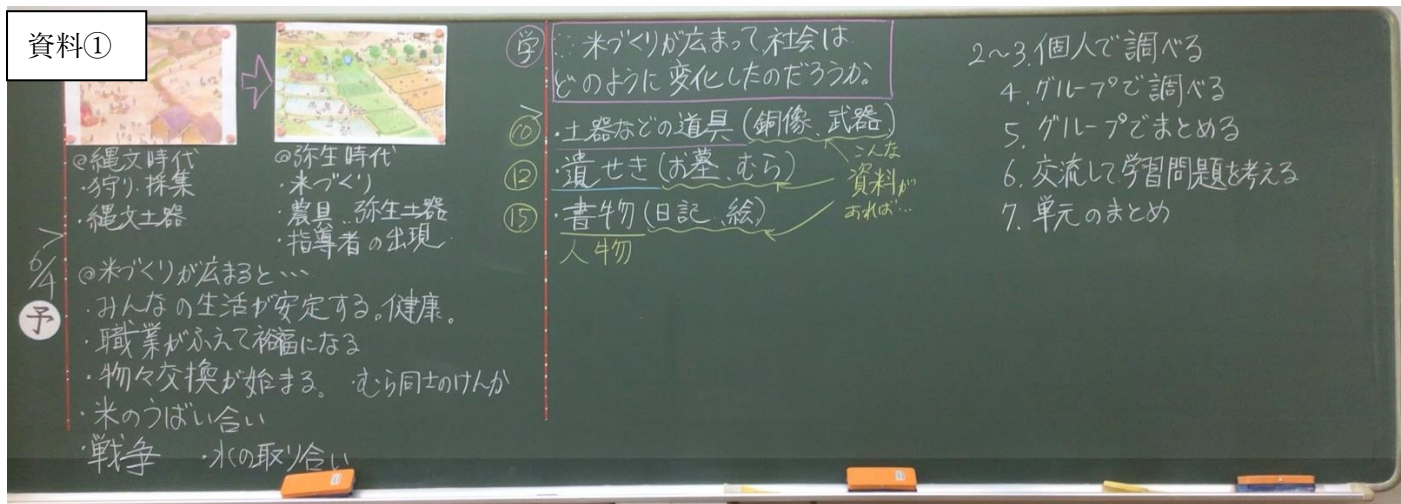 資料①
@縄文時代
・狩り・採集
・縄文土器
@弥生時代
・米づくり
・農具…弥生土器
・指導者の出現
6/4
予
@米づくりが広まると…
・みんなの生活が安定する。健康。
・職業がふえて裕福になる
・物々交換が始まる。 ・むら同士のけんか
・米のうばい合い
・戦争 ・水の取り合い
学
米づくりが広まって社会は
どのように変化したのだろうか。
⑩ ・土器などの道具(銅像、武器)
⑫ ・遺せき(お墓、むら)
⑮ ・書物(日記、絵)
人物
こんな
資料が
あれば…
2~3.個人で調べる
4.グループで調べる
5.グループでまとめる
6.交流して学習問題を考える
7.単元のまとめ